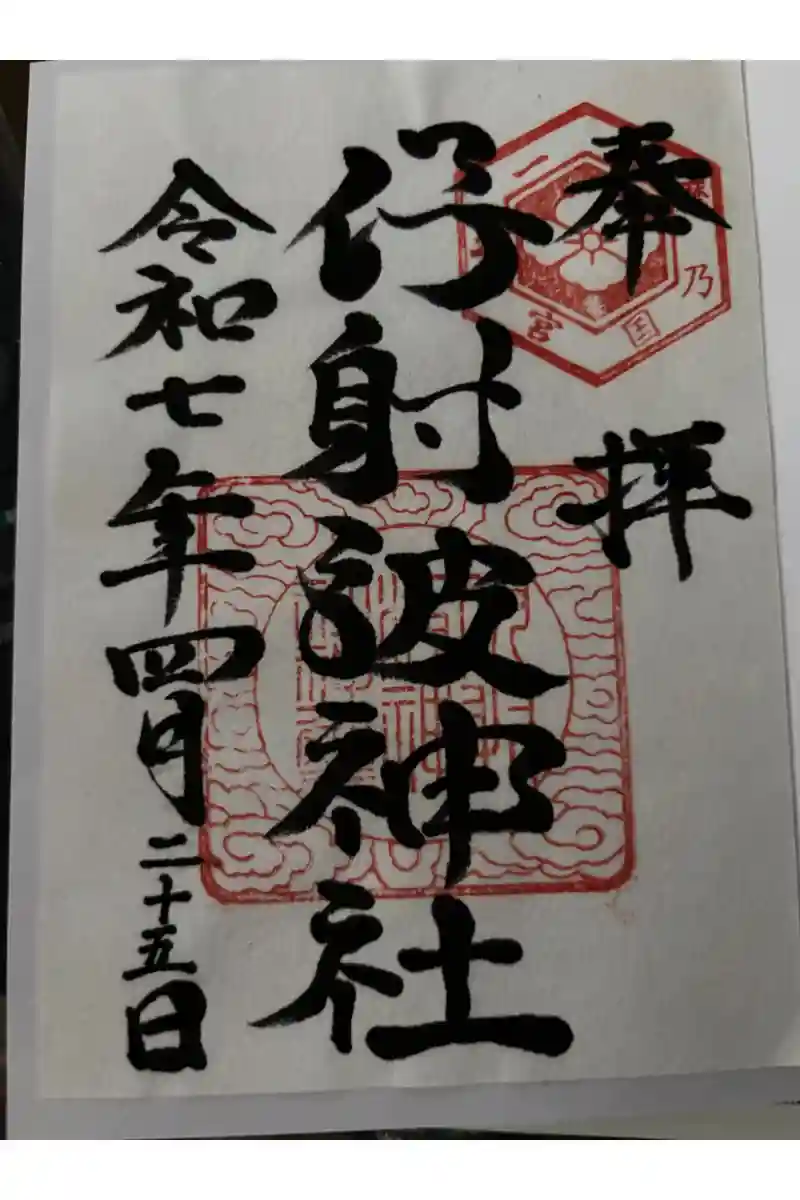 奉拝
乃国宮
伊射波神社
令和七年四月二十五日